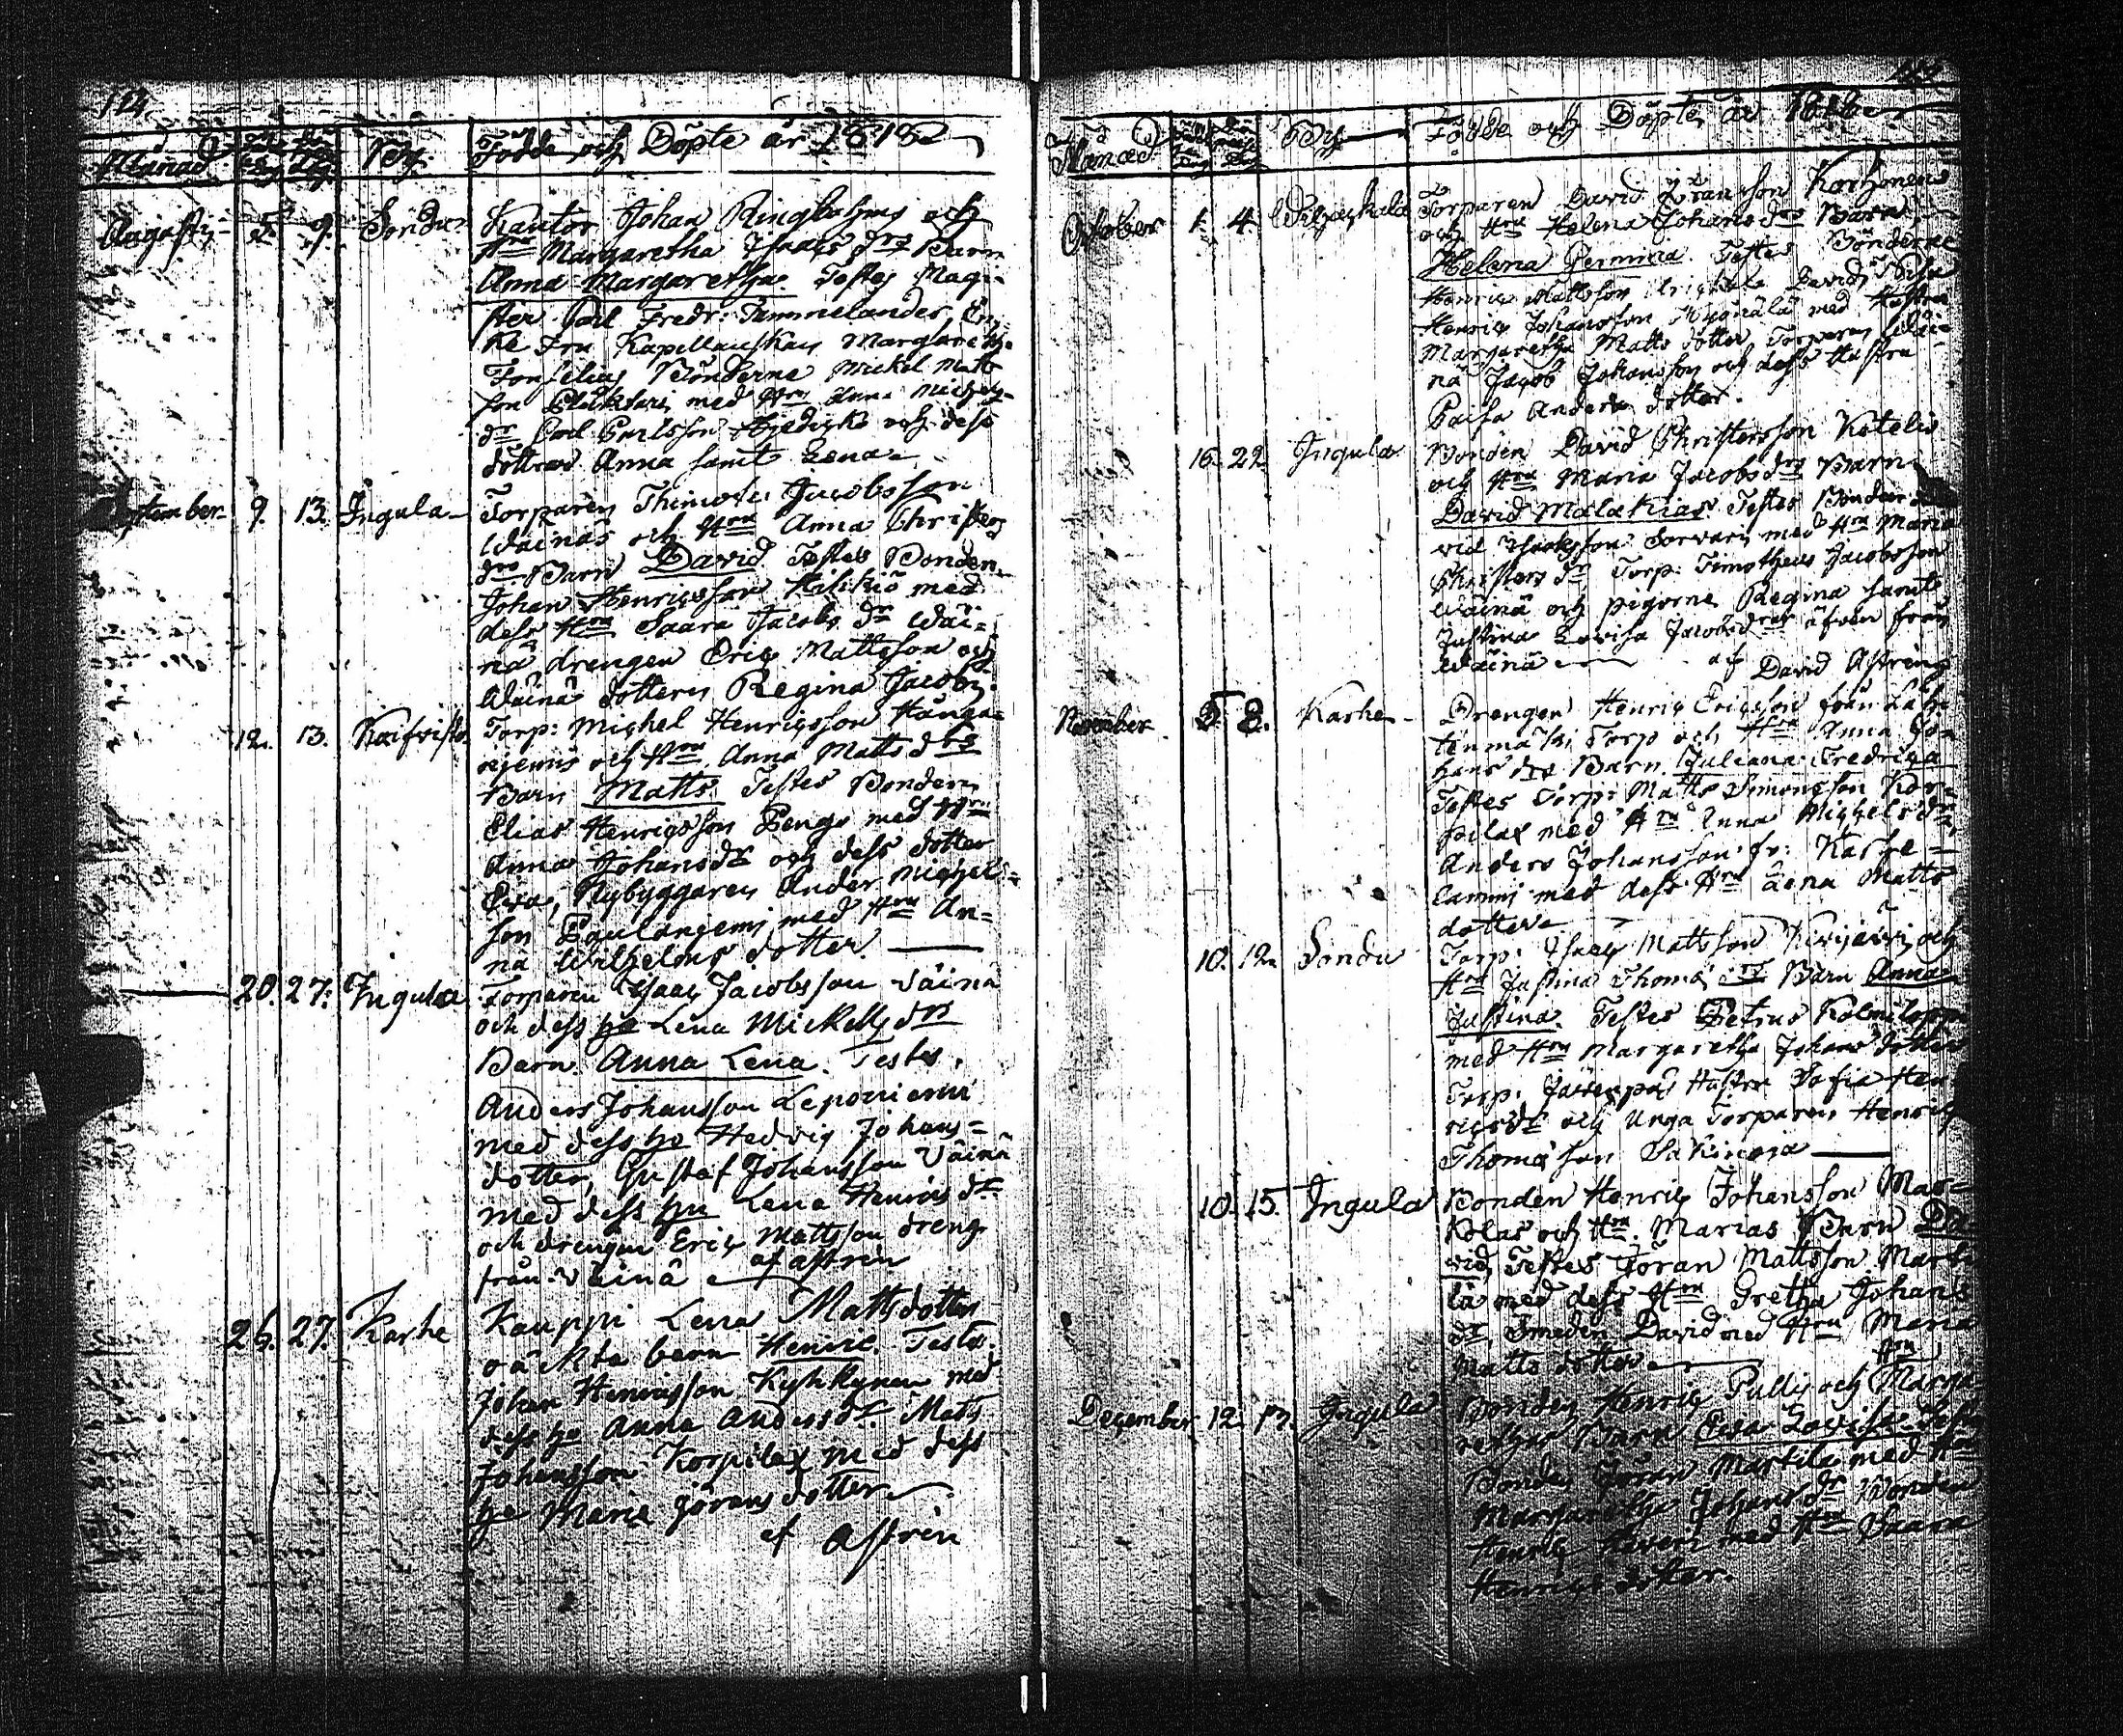 114
Månad. By. Födde och Döpte år 1818
Augusti 5 9. Sondu Kantor Johan Ringbohms och
Hru Margaretha Isaacs drs Barn
Anna Margaretha. Testes Magi-
ster Carl Fredr: Tammelander, En-
ke Fru Kapellanskan Margareth.
Fonselius Bönderne Mickel Matts
son med Hru Anna Michels-
dr Carl Carlsson och dess
döttrar Anna samt Lena
September 9. 13. Ingula Torparen Thimoth. Jacobsson
Wäinäs och Hru Anna Christers
drs Barn David Testes Bonden
Johan Henricsson med
dess Hru Saara Jacobs dr Wäi-
nä drengen Eric Mattsson och
Wäinä dottern Regina Jacobs.
12. 13. Torp: Michel Henricsson
och Hru Anna Matts drs
Barn Matts Testes Bonden
Elias Henricsson Pengo med Hru
Anna Johansdr och dess dotter
Eva, Nybyggaren Ander Michels-
son med Hru An-
na Wilhelms dotter.
20. 27. Ingula Torparen Isaac Jacobsson Väinä
och dess hu Lena Mickels drs
Barn Anna Lena. Testes.
Anders Johansson Leponiemi
med dess hu Hedvig Johans=
dotter, Gustaf Johansson Väinä
med dess hu Lena Henrics dr
och drengen Eric Mattsson dreng
från Väinä af Astrén
26. 27. Karhe Kauppi Lena Mattsdotters
oäckta barn Henric. Testes.
Johan Henricsson Kyhkynen med
dess hu Anna Andersdr. Matts
Johansson Korpilax med dess
hu Maria Görans dotter
af Astrén
Månad By Födde och Döpte år 1818
October 1. 4. Torparen David Göransson Korhonens
och Hru Helena Johans drs Barn
Helena Hermina Testes Bönderne
Henric Mattsson David
Henric Johansson med Hustru
Margaretha Matts dotter, Torparen Wäi-
nä Jacob Johansson och dess Hustru
Caisa Anders dotter.
16. 22. Ingula Bonden David Christersson Ketelis
och Hru Maria Jacobs drs Barn
David Malakias Testes Bonden Da-
vid Isacsson Sorvari med Hru Maria
Christers dr Torp: Timotheus Jacobsson
Wäinä och pigorne Regina samt
Justina Lovisa Jacobsdrar äfven från
Wäinä af David Astrén
November 5 8. Karhe Drengen Henric Ericsson från Läh-
tenmäki Torp och Hru Anna Jo-
hans drs Barn Juliana Fredrica
Testes Torp: Matts Simonsson Kor-
pilax med Hru Anna Michels dr
Anders Johansson fr: Karhe-
lammi med dess Hru Anna Matts
dotter
10. 12. Sondu Torp: Isaac Mattsson Kivijärvi och
Hru Justina Thomæ drs Barn Anna
Justina. Testes Petrus
med Hru Margaretha Johans dotter
Torp: Järvenpäs Hustru Sofia Hen-
ricsdr och Unga Torparen Henric
Thomæson
10. 15. Ingula Bonden Henric Johansson Mar-
kolas och Hru Marias Barn Da-
vid, Testes Jöran Mattsson Marti-
la med dess Hru Gretha Johans
dr, Smeden David med Hru Maria
Matts dotter
December 12. 13. Ingula Bonden Henric Pullis och Hru Marga-
rethas Barn Eva Lovisa Testes
Bonden Jöran Martila med Hru
Margaretha Johans dr Bonden
Henric med Hru Saara
Henrics dotter.